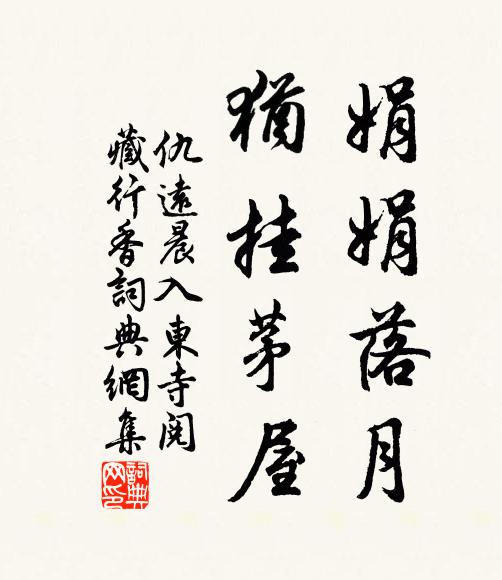 娟娟落月
猶挂茅屋
仇遠晨入東寺閱
藏行香詞典網集